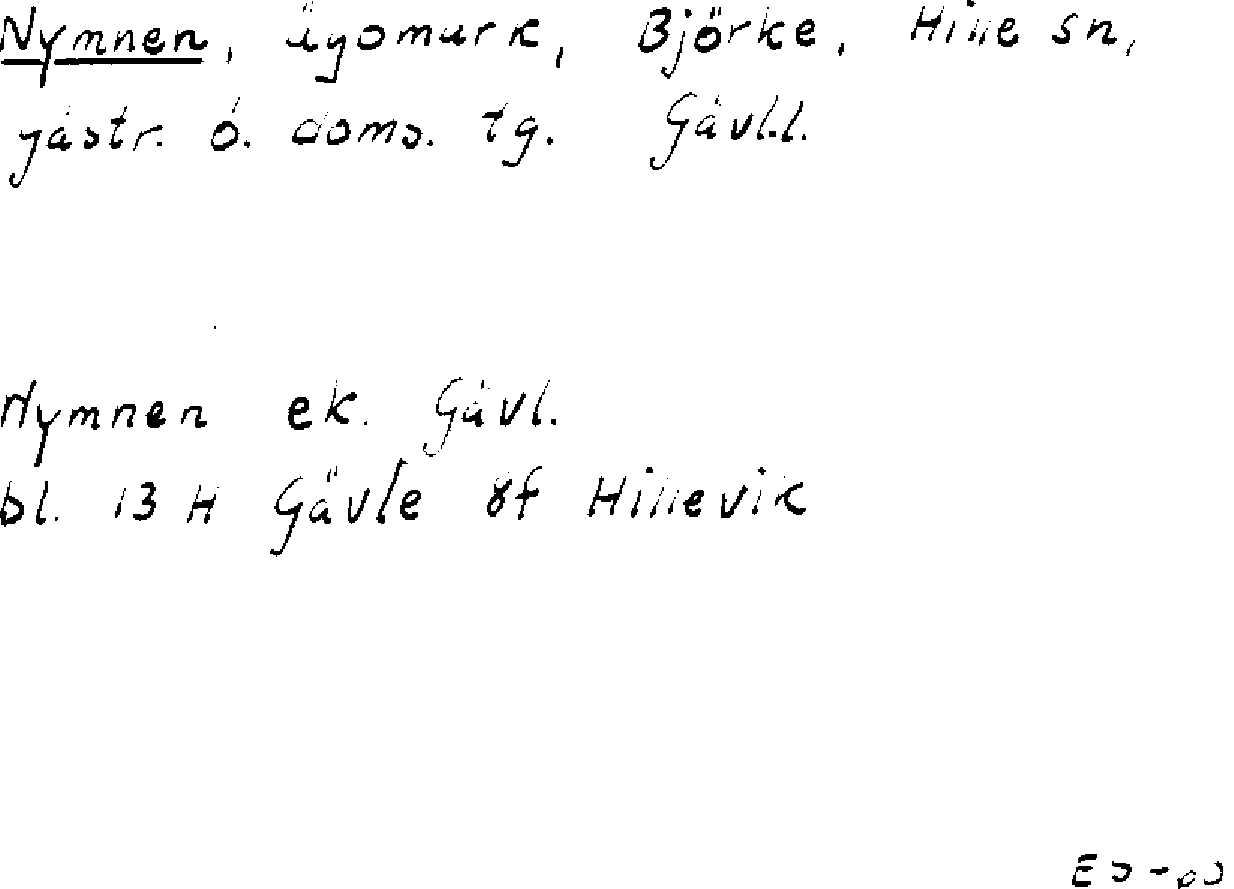 Nymnen, ägomark, Björke, Hille sn,
gästr. ö. doms. tg. Gävl.l.
Nymnen ek. Gävl.
bl. 13 H Gävle 8f Hillevik